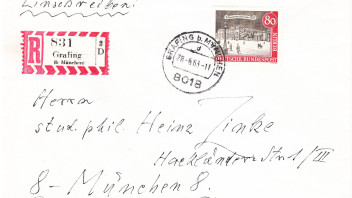 Einschreiben!
R 831 a D
Grafing
(b München)
GRAFING b. MÜNCHEN
d
28-6.63-11
8018
80
DEUTSCHE BUNDESPOST
BERLIN
Herrn
stud. phil. Heinz Zinke
Hackländerstr. 1/III
8-München 8.